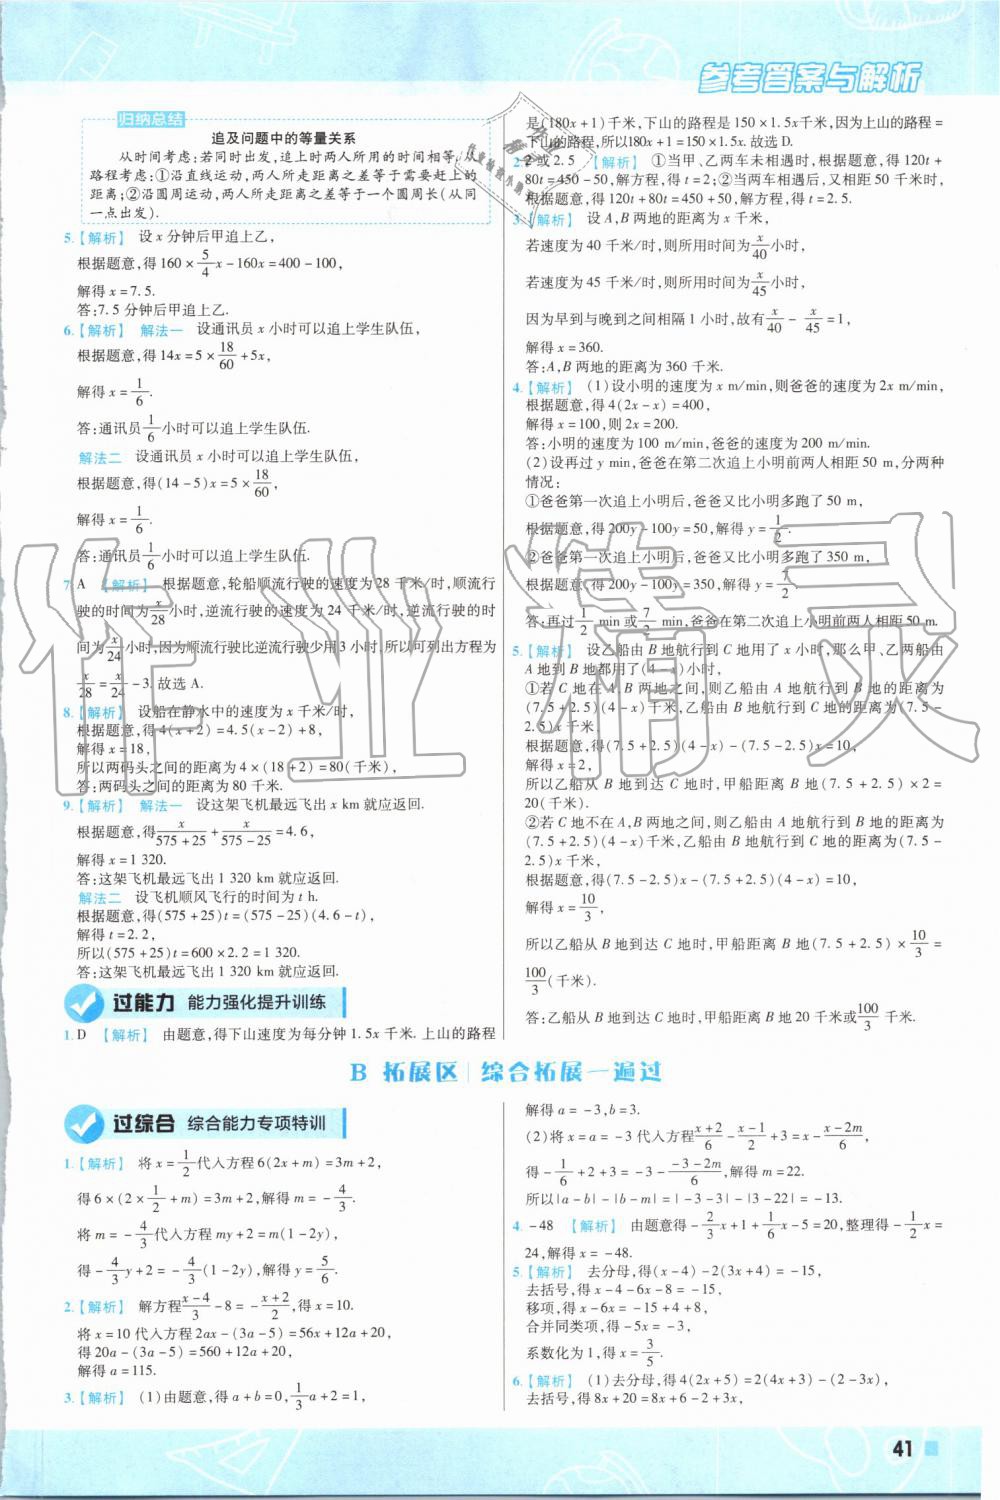 参考答案与解析
归纳总结
追及问题中的等量关系
从时间考虑:若同时出发,追上时两人所用的时间相等.从
路程考虑:①沿直线运动,两人所走距离之差等于需要赶上的
距离;②沿圆周运动,两人所走距离之差等于一个圆周长(从同
一点出发).
5.【解析】 设 x 分钟后甲追上乙,
根据题意,得 160×5/4x-160x=400-100,
解得 x=7.5.
答:7.5 分钟后甲追上乙.
6.【解析】 解法一 设通讯员 x 小时可以追上学生队伍,
根据题意,得 14x=5×18/60+5x,
解得 x=1/6.
答:通讯员1/6小时可以追上学生队伍.
解法二 设通讯员 x 小时可以追上学生队伍,
根据题意,得(14-5)x=5×18/60,
解得 x=1/6.
答:通讯员1/6小时可以追上学生队伍.
7. A 【解析】 根据题意,轮船顺流行驶的速度为 28 千米/时,顺流行
驶的时间为x/28小时,逆流行驶的速度为 24 千米/时,逆流行驶的时
间为x/24小时,因为顺流行驶比逆流行驶少用 3 小时,所以可列出方程为
x/28=x/24-3.故选 A.
8.【解析】 设船在静水中的速度为 x 千米/时,
根据题意,得 4(x+2)=4.5(x-2)+8,
解得 x=18,
所以两码头之间的距离为 4×(18+2)=80(千米),
答:两码头之间的距离为 80 千米.
9.【解析】 解法一 设这架飞机最远飞出 x km 就应返回.
根据题意,得x/575+25+x/575-25=4.6,
解得 x=1 320.
答:这架飞机最远飞出 1 320 km 就应返回.
解法二 设飞机顺风飞行的时间为 t h.
根据题意,得(575+25)t=(575-25)(4.6-t),
解得 t=2.2,
所以(575+25)t=600×2.2=1 320.
答:这架飞机最远飞出 1 320 km 就应返回.
过能力 能力强化提升训练
1. D 【解析】 由题意,得下山速度为每分钟 1.5x 千米.上山的路程
是(180x+1)千米,下山的路程是 150×1.5x千米,因为上山的路程=
下山的路程,所以180x+1=150×1.5x.故选 D.
2. 2 或 2.5 【解析】 ①当甲、乙两车未相遇时,根据题意,得 120t+
80t=450-50,解方程,得 t=2;②当两车相遇后,又相距 50 千米时,
根据题意,得 120t+80t=450+50,解方程,得 t=2.5.
3.【解析】 设 A,B 两地的距离为 x 千米,
若速度为 40 千米/时,则所用时间为x/40小时,
若速度为 45 千米/时,则所用时间为x/45小时,
因为早到与晚到之间相隔 1 小时,故有x/40-x/45=1,
解得 x=360.
答:A,B 两地的距离为 360 千米.
4.【解析】 (1)设小明的速度为 x m/min,则爸爸的速度为 2x m/min,
根据题意,得 4(2x-x)=400,
解得 x=100,则 2x=200.
答:小明的速度为 100 m/min,爸爸的速度为 200 m/min.
(2)设再过 y min,爸爸在第二次追上小明前两人相距 50 m,分两种
情况:
①爸爸第一次追上小明后,爸爸又比小明多跑了 50 m,
根据题意,得 200y-100y=50,解得 y=1/2.
②爸爸第一次追上小明后,爸爸又比小明多跑了 350 m,
根据题意,得 200y-100y=350,解得 y=7/2.
答:再过1/2 min 或7/2 min,爸爸在第二次追上小明前两人相距 50 m.
5.【解析】 设乙船由 B 地航行到 C 地用了 x 小时,那么甲、乙两船由
A 地到 B 地都用了(4-x)小时,
①若 C 地在 A,B 两地之间,则乙船由 A 地航行到 B 地的距离为
(7.5+2.5)(4-x)千米,乙船由 B 地航行到 C 地的距离为(7.5-
2.5)x 千米.
根据题意,得(7.5+2.5)(4-x)-(7.5-2.5)x=10,
解得 x=2,
所以乙船从 B 地到达 C 地时,甲船距离 B 地(7.5+2.5)×2=
20(千米).
②若 C 地不在 A,B 两地之间,则乙船由 A 地航行到 B 地的距离为
(7.5+2.5)(4-x)千米,乙船由 B 地航行到 C 地的距离为(7.5-
2.5)x 千米.
根据题意,得(7.5-2.5)x-(7.5+2.5)(4-x)=10,
解得 x=10/3,
所以乙船从 B 地到达 C 地时,甲船距离 B 地(7.5+2.5)×10/3=
100/3(千米).
答:乙船从 B 地到达 C 地时,甲船距离 B 地 20 千米或100/3千米.
B 拓展区 综合拓展一遍过
过综合 综合能力专项特训
1.【解析】 将 x=1/2代入方程 6(2x+m)=3m+2,
得 6×(2×1/2+m)=3m+2,解得 m=-4/3.
将 m=-4/3代入方程 my+2=m(1-2y),
得-4/3y+2=-4/3(1-2y),解得 y=5/6.
2.【解析】 解方程x-4/3-8=-x+2/2,得 x=10.
将 x=10 代入方程 2ax-(3a-5)=56x+12a+20,
得 20a-(3a-5)=560+12a+20,
解得 a=115.
3.【解析】 (1)由题意,得 a+b=0,1/3a+2=1,
解得 a=-3,b=3.
(2)将 x=a=-3 代入方程x+2/6-x-1/2+3=x-x-2m/6,
得-1/6+2+3=-3--3-2m/6,解得 m=22.
所以|a-b|-|b-m|=|-3-3|-|3-22|=-13.
4. -48 【解析】 由题意得-2/3x+1+1/6x-5=20,整理得-1/2x=
24,解得 x=-48.
5.【解析】 去分母,得(x-4)-2(3x+4)=-15,
去括号,得 x-4-6x-8=-15,
移项,得 x-6x=-15+4+8,
合并同类项,得-5x=-3,
系数化为 1,得 x=3/5.
6.【解析】 (1)去分母,得 4(2x+5)=2(4x+3)-(2-3x),
去括号,得 8x+20=8x+6-2+3x,
41
作业精灵